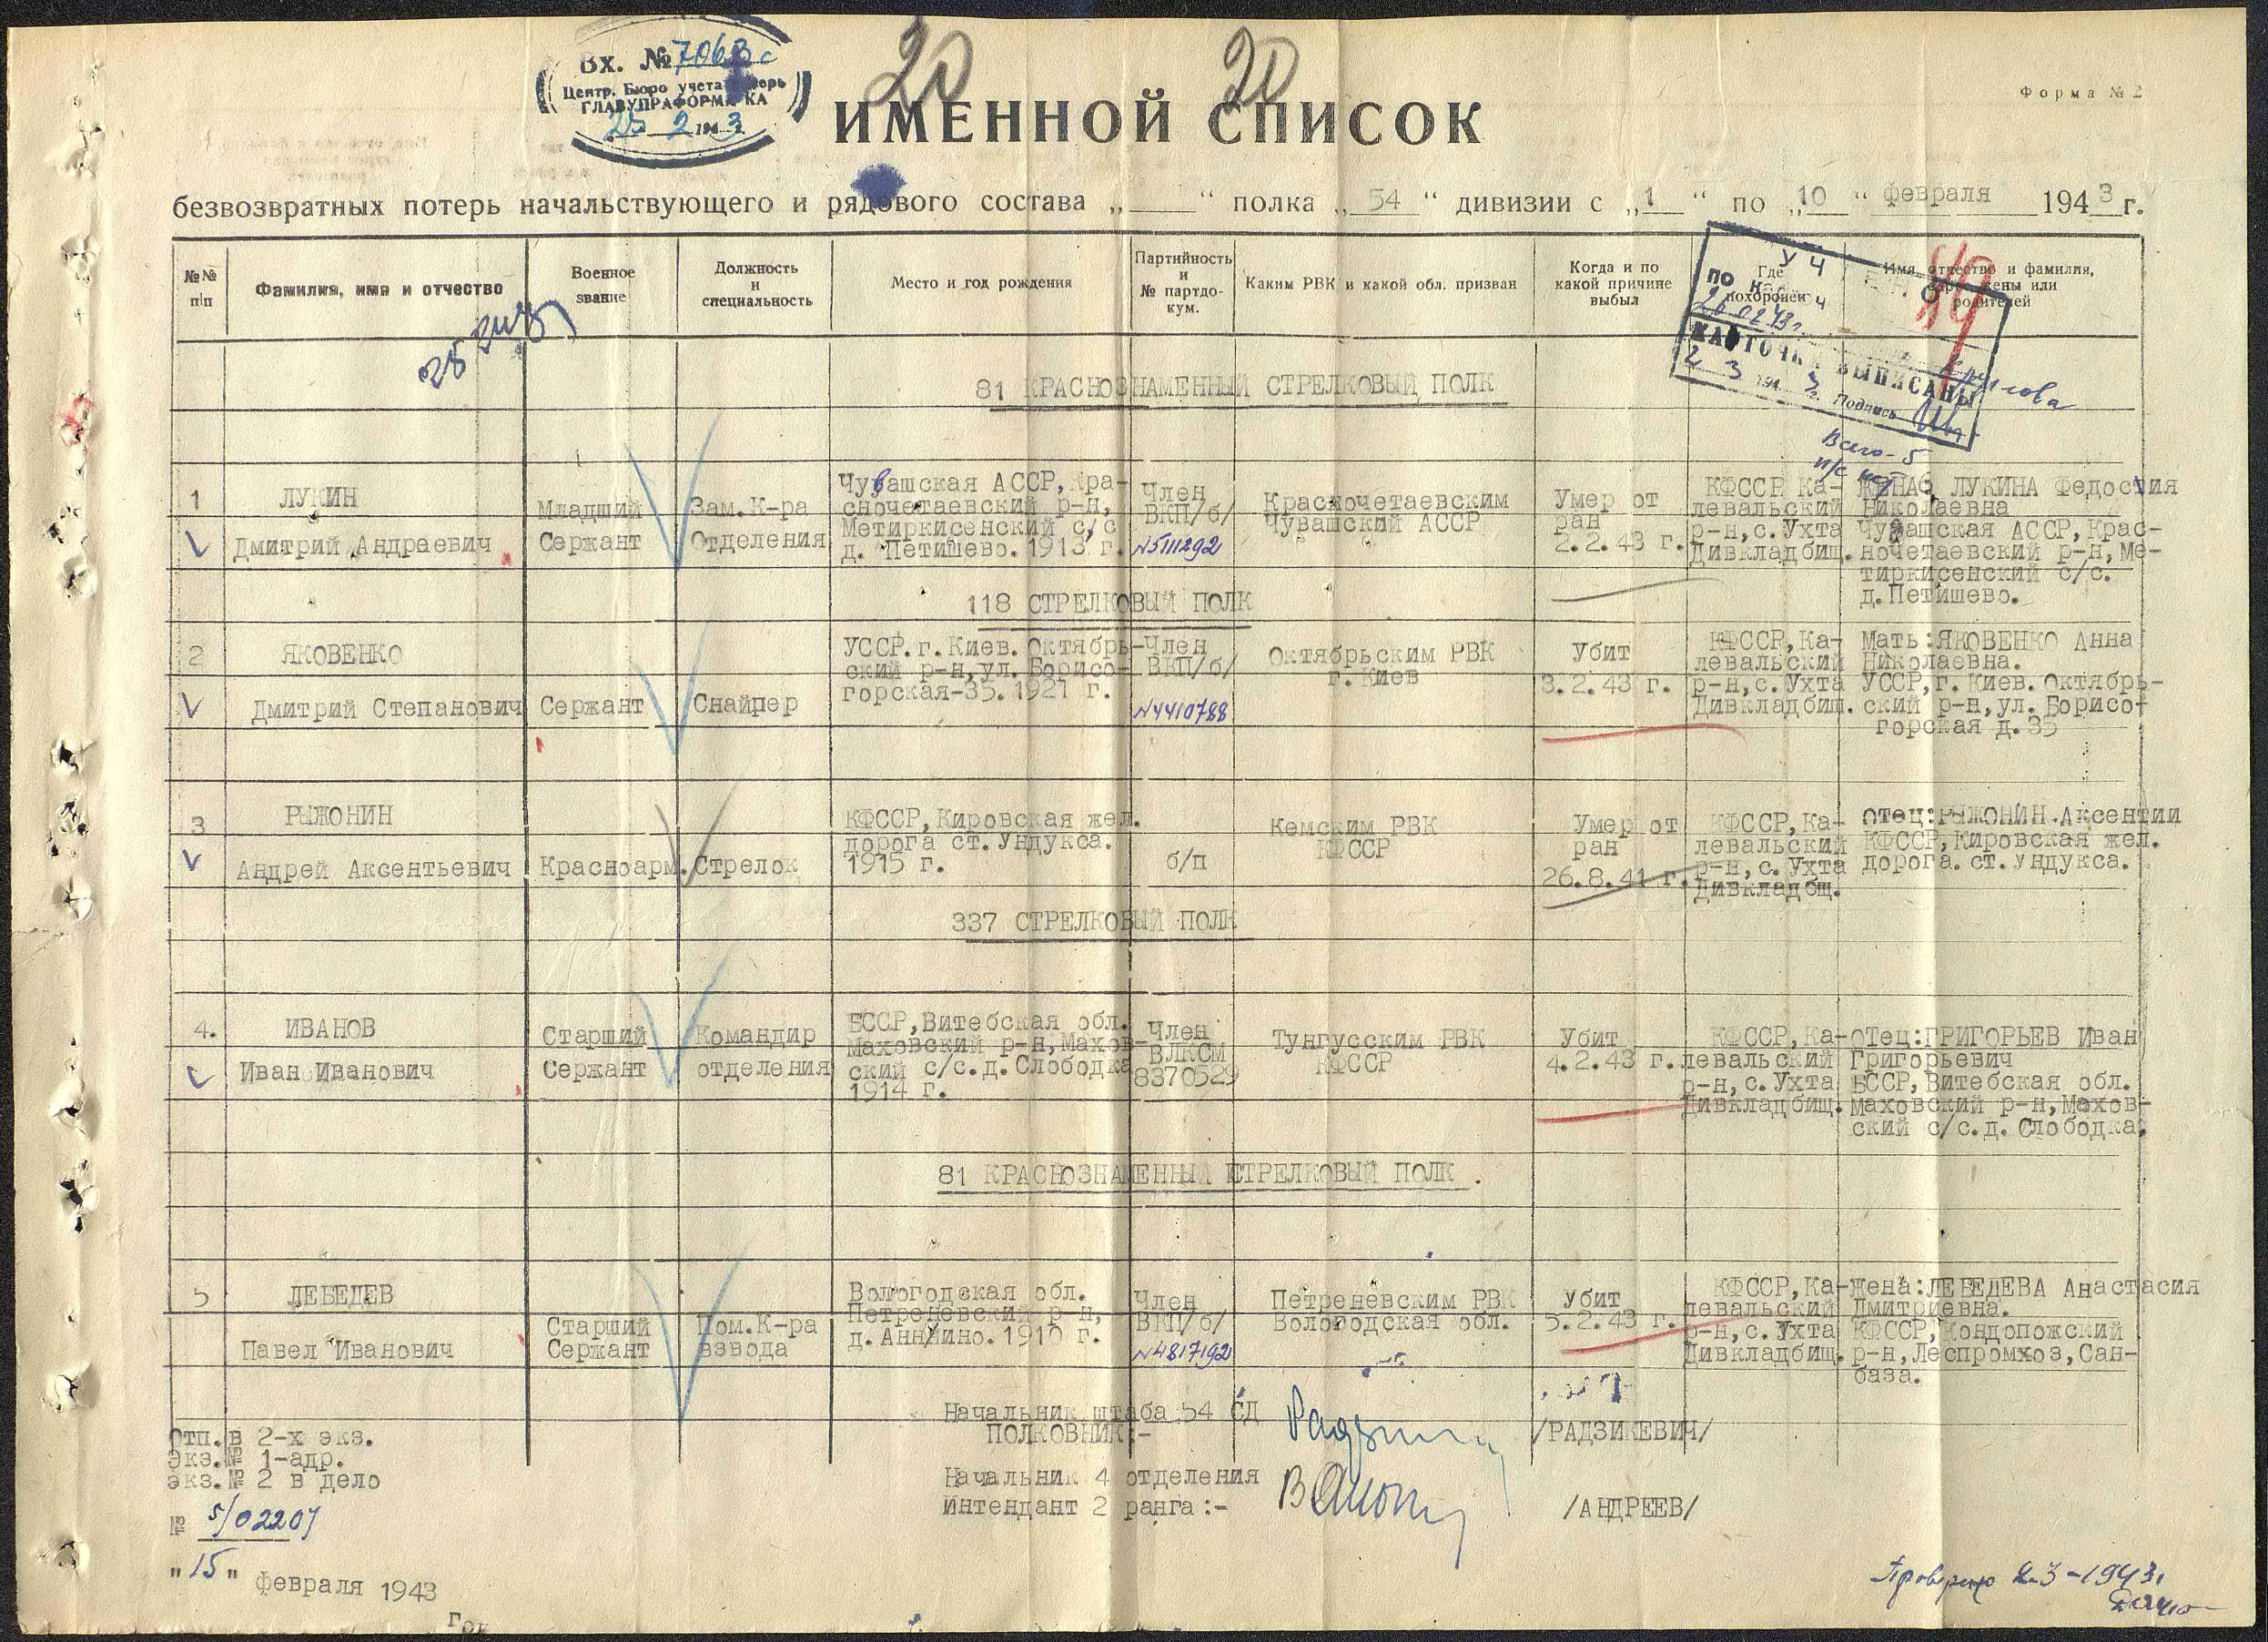 Вх. № 7063с
Центр. Бюро учета потерь
ГЛАВУПРАФОРМ КА
25 2 1943
20 20
Форма № 2
ИМЕННОЙ СПИСОК
безвозвратных потерь начальствующего и рядового состава „ “ полка „ 54 “ дивизии с „1 “ по „10 “ февраля 1943 г.
№№ п/п
Фамилия, имя и отчество
Военное звание
Должность и специальность
Место и год рождения
Партийность и № партдокум.
Каким РВК и какой обл. призван
Когда и по какой причине выбыл
Где похоронен
Имя, отчество и фамилия, жены или родителей
УЧ
ПО
26 02 43 г.
КАРТОЧКИ ВЫПИСАНЫ
2 3 1943 г. Подпись
Всего - 5
81 КРАСНОЗНАМЕННЫЙ СТРЕЛКОВЫЙ ПОЛК
1
ЛУКИН
Дмитрий Андраевич
Младший
Сержант
Зам.К-ра
Отделения
Чувашская АССР, Кра-
сночетаевский р-н,
Метиркисенский с/с
д. Петишево. 1913 г.
Член
ВКП/б/
№5111292
Красночетаевским
Чувашской АССР
Умер от
ран
2.2.43 г.
КФССР Ка-
левальский
р-н,с.Ухта
Дивкладбищ.
ЖЕНА: ЛУКИНА Федостия
Николаевна
Чувашская АССР,Крас-
ночетаевский р-н,Ме-
тиркисенский с/с.
д.Петишево.
118 СТРЕЛКОВЫЙ ПОЛК
2
ЯКОВЕНКО
Дмитрий Степанович
Сержант
Снайпер
УССР.г.Киев.Октябрь-
ский р-н,ул.Борисо-
горская-35.1921 г.
Член
ВКП/б/
№4410788
Октябрьским РВК
г.Киев
Убит
3.2.43 г.
КФССР,Ка-
левальский
р-н,с.Ухта
Дивкладбищ.
Мать:ЯКОВЕНКО Анна
Николаевна.
УССР,г.Киев.Октябрь-
ский р-н,ул.Борисо-
горская д.35
3
РЫЖОНИН
Андрей Аксентьевич
Красноарм.
Стрелок
КФССР,Кировская жел.
дорога ст.Ундукса.
1915 г.
б/п
Кемским РВК
КФССР
Умер от
ран
26.8.41 г.
КФССР,Ка-
левальский
р-н,с.Ухта
Дивкладбщ.
отец:РЫЖОНИН.Аксентии
КФССР,Кировская жел.
дорога.ст.Ундукса.
337 СТРЕЛКОВЫЙ ПОЛК
4.
ИВАНОВ
Иван Иванович
Старший
Сержант
Командир
отделения
БССР,Витебская обл.
Маховский р-н,Махов-
ский с/с.д.Слободка
1914 г.
Член
ВЛКСМ
8370529
Тунгусским РВК
КФССР
Убит
4.2.43 г.
КФССР,Ка-
левальский
р-н,с.Ухта
Дивкладбищ.
Отец:ГРИГОРЬЕВ Иван
Григорьевич
БССР,Витебская обл.
Маховский р-н,Махов-
ский с/с.д.Слободка.
81 КРАСНОЗНАМЕННЫЙ СТРЕЛКОВЫЙ ПОЛК.
5
ЛЕБЕДЕВ
Павел Иванович
Старший
Сержант
Пом.К-ра
взвода
Вологодская обл.
Петреневский р-н,
д.Аннино.1910 г.
Член
ВКП/б/
№4817192
Петреневским РВК
Вологодская обл.
Убит
5.2.43 г.
КФССР,Ка-
левальский
р-н,с.Ухта
Дивкладбищ.
Жена:ЛЕБЕДЕВА Анастасия
Дмитриевна.
КФССР,Кондопожский
р-н,Леспромхоз,Сан-
база.
Начальник штаба 54 СД
ПОЛКОВНИК:-
/РАДЗИКЕВИЧ/
Начальник 4 отделения
Интендант 2 ранга:-
/АНДРЕЕВ/
Отп.в 2-х экз.
Экз.№ 1-адр.
экз.№ 2 в дело
№ 5/02207
"15" февраля 1943
год
Проверено 2.3-1943г.